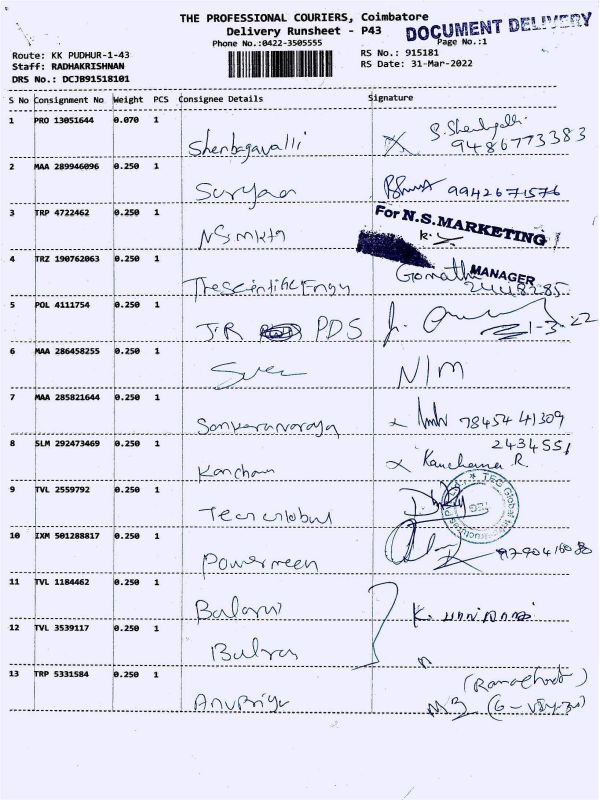 THE PROFESSIONAL COURIERS, Coimbatore
DOCUMENT DELIVERY
Delivery Runsheet - P43
Phone No.:0422-3505555
Page No.:1
Route: KK PUDHUR-1-43
RS No.: 915181
Staff: RADHAKRISHNAN
RS Date: 31-Mar-2022
DRS No.: DCJB91518101
S No Consignment No Weight PCS Consignee Details Signature
1 PRO 13051644 0.070 1 Shenbagavalli 9486773383
2 MAA 289946096 0.250 1 Suryaa 9942671576
3 TRP 4722462 0.250 1 NS mktg For N.S.MARKETING
MANAGER
4 TRZ 190762063 0.250 1 The scientific Engg Gomathi 2448285
5 POL 4111754 0.250 1 J.R PDS 1-3-22
6 MAA 286458255 0.250 1 N/M
7 MAA 285821644 0.250 1 Sankaranaraya 78454 41309
2434551
8 SLM 292473469 0.250 1 Kancham Kanchana R.
9 TVL 2559792 0.250 1 TEG Global
10 IXM 501288817 0.250 1
11 TVL 1184462 0.250 1 K.
12 TVL 3539117 0.250 1
13 TRP 5331584 0.250 1 Anupriya